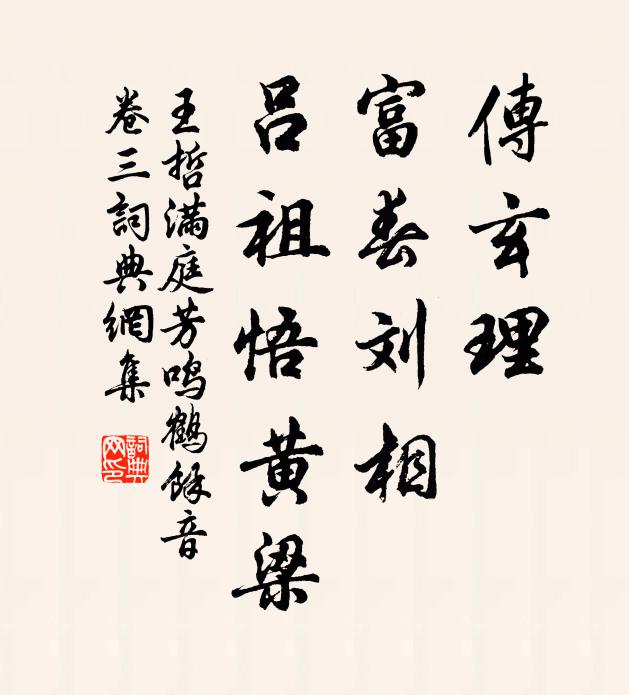 傳玄理
富春刘相
吕祖悟黄粱
王哲满庭芳鸣鹤餘音
卷三詞典網集
詞典网印